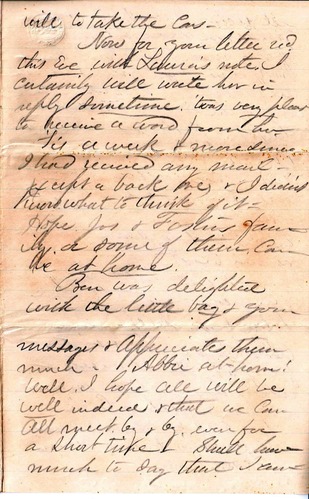 will to take the Cars -
Now for your letter recd
this Eve with Laura's note. I
certainly will write her in
reply sometime. twas very pleas
to receive a word from her
Tis a week & more since
I had received any mail -
except a back one & I didn't
know what to think of it -
Hope Jos & Foster's fam
ily. or some of them can
be at home.
Ben was delighted
with the little bag & your
messages & Appreciates them
much - Abbie at home!
Well, I hope all will be
well indeed & that we can
All meet by & by. even for
a short time - Shall have
much to say that I can